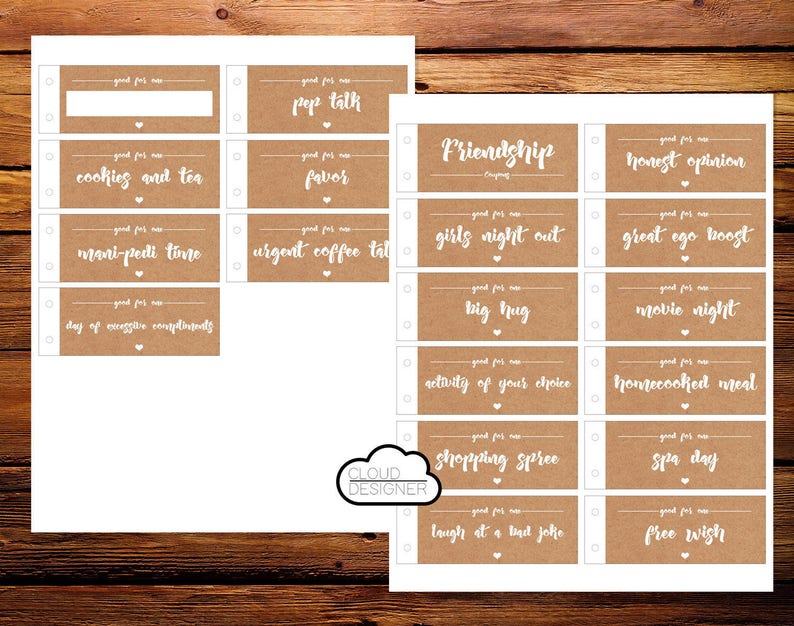 good for one
good for one
pep talk
good for one
cookies and tea
good for one
favor
good for one
mani-pedi time
good for one
urgent coffee tal
good for one
day of excessive compliments
Friendship
Coupons
good for one
honest opinion
good for one
girls night out
good for one
great ego boost
good for one
big hug
good for one
movie night
good for one
activity of your choice
good for one
homecooked meal
good for one
shopping spree
good for one
spa day
good for one
laugh at a bad joke
good for one
free wish
CLOUD
DESIGNER